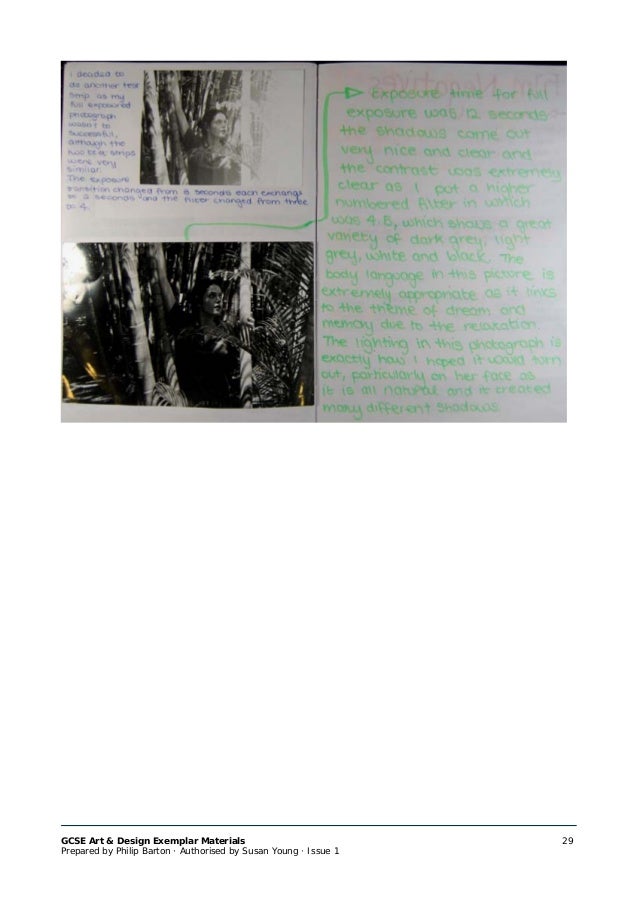 i decided to
do another test
strip as my
full exposured
photograph
wasn't to
successful,
although the
two test strips
were very
similar.
The exposure
transition changed from 8 seconds each exchange
to 2 seconds and the filter changed from three
to 4.
Exposure time for full
exposure was 12 seconds
the shadows come out
very nice and clear and
the contrast was extremely
clear as I put a higher
numbered filter in which
was 4.5, which shows a great
variety of dark grey, light
grey, white and black. The
body language in this picture is
extremely appropriate as it links
to the theme of dream and
memory due to the relaxation.
The lighting in this photograph is
exactly how I hoped it would turn
out, particularly on her face as
it is all natural and it created
many different shadows.
GCSE Art & Design Exemplar Materials
29
Prepared by Philip Barton · Authorised by Susan Young · Issue 1